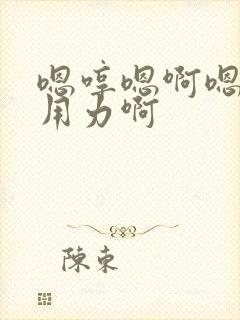 嗯哼嗯啊嗯
用力啊
陳東